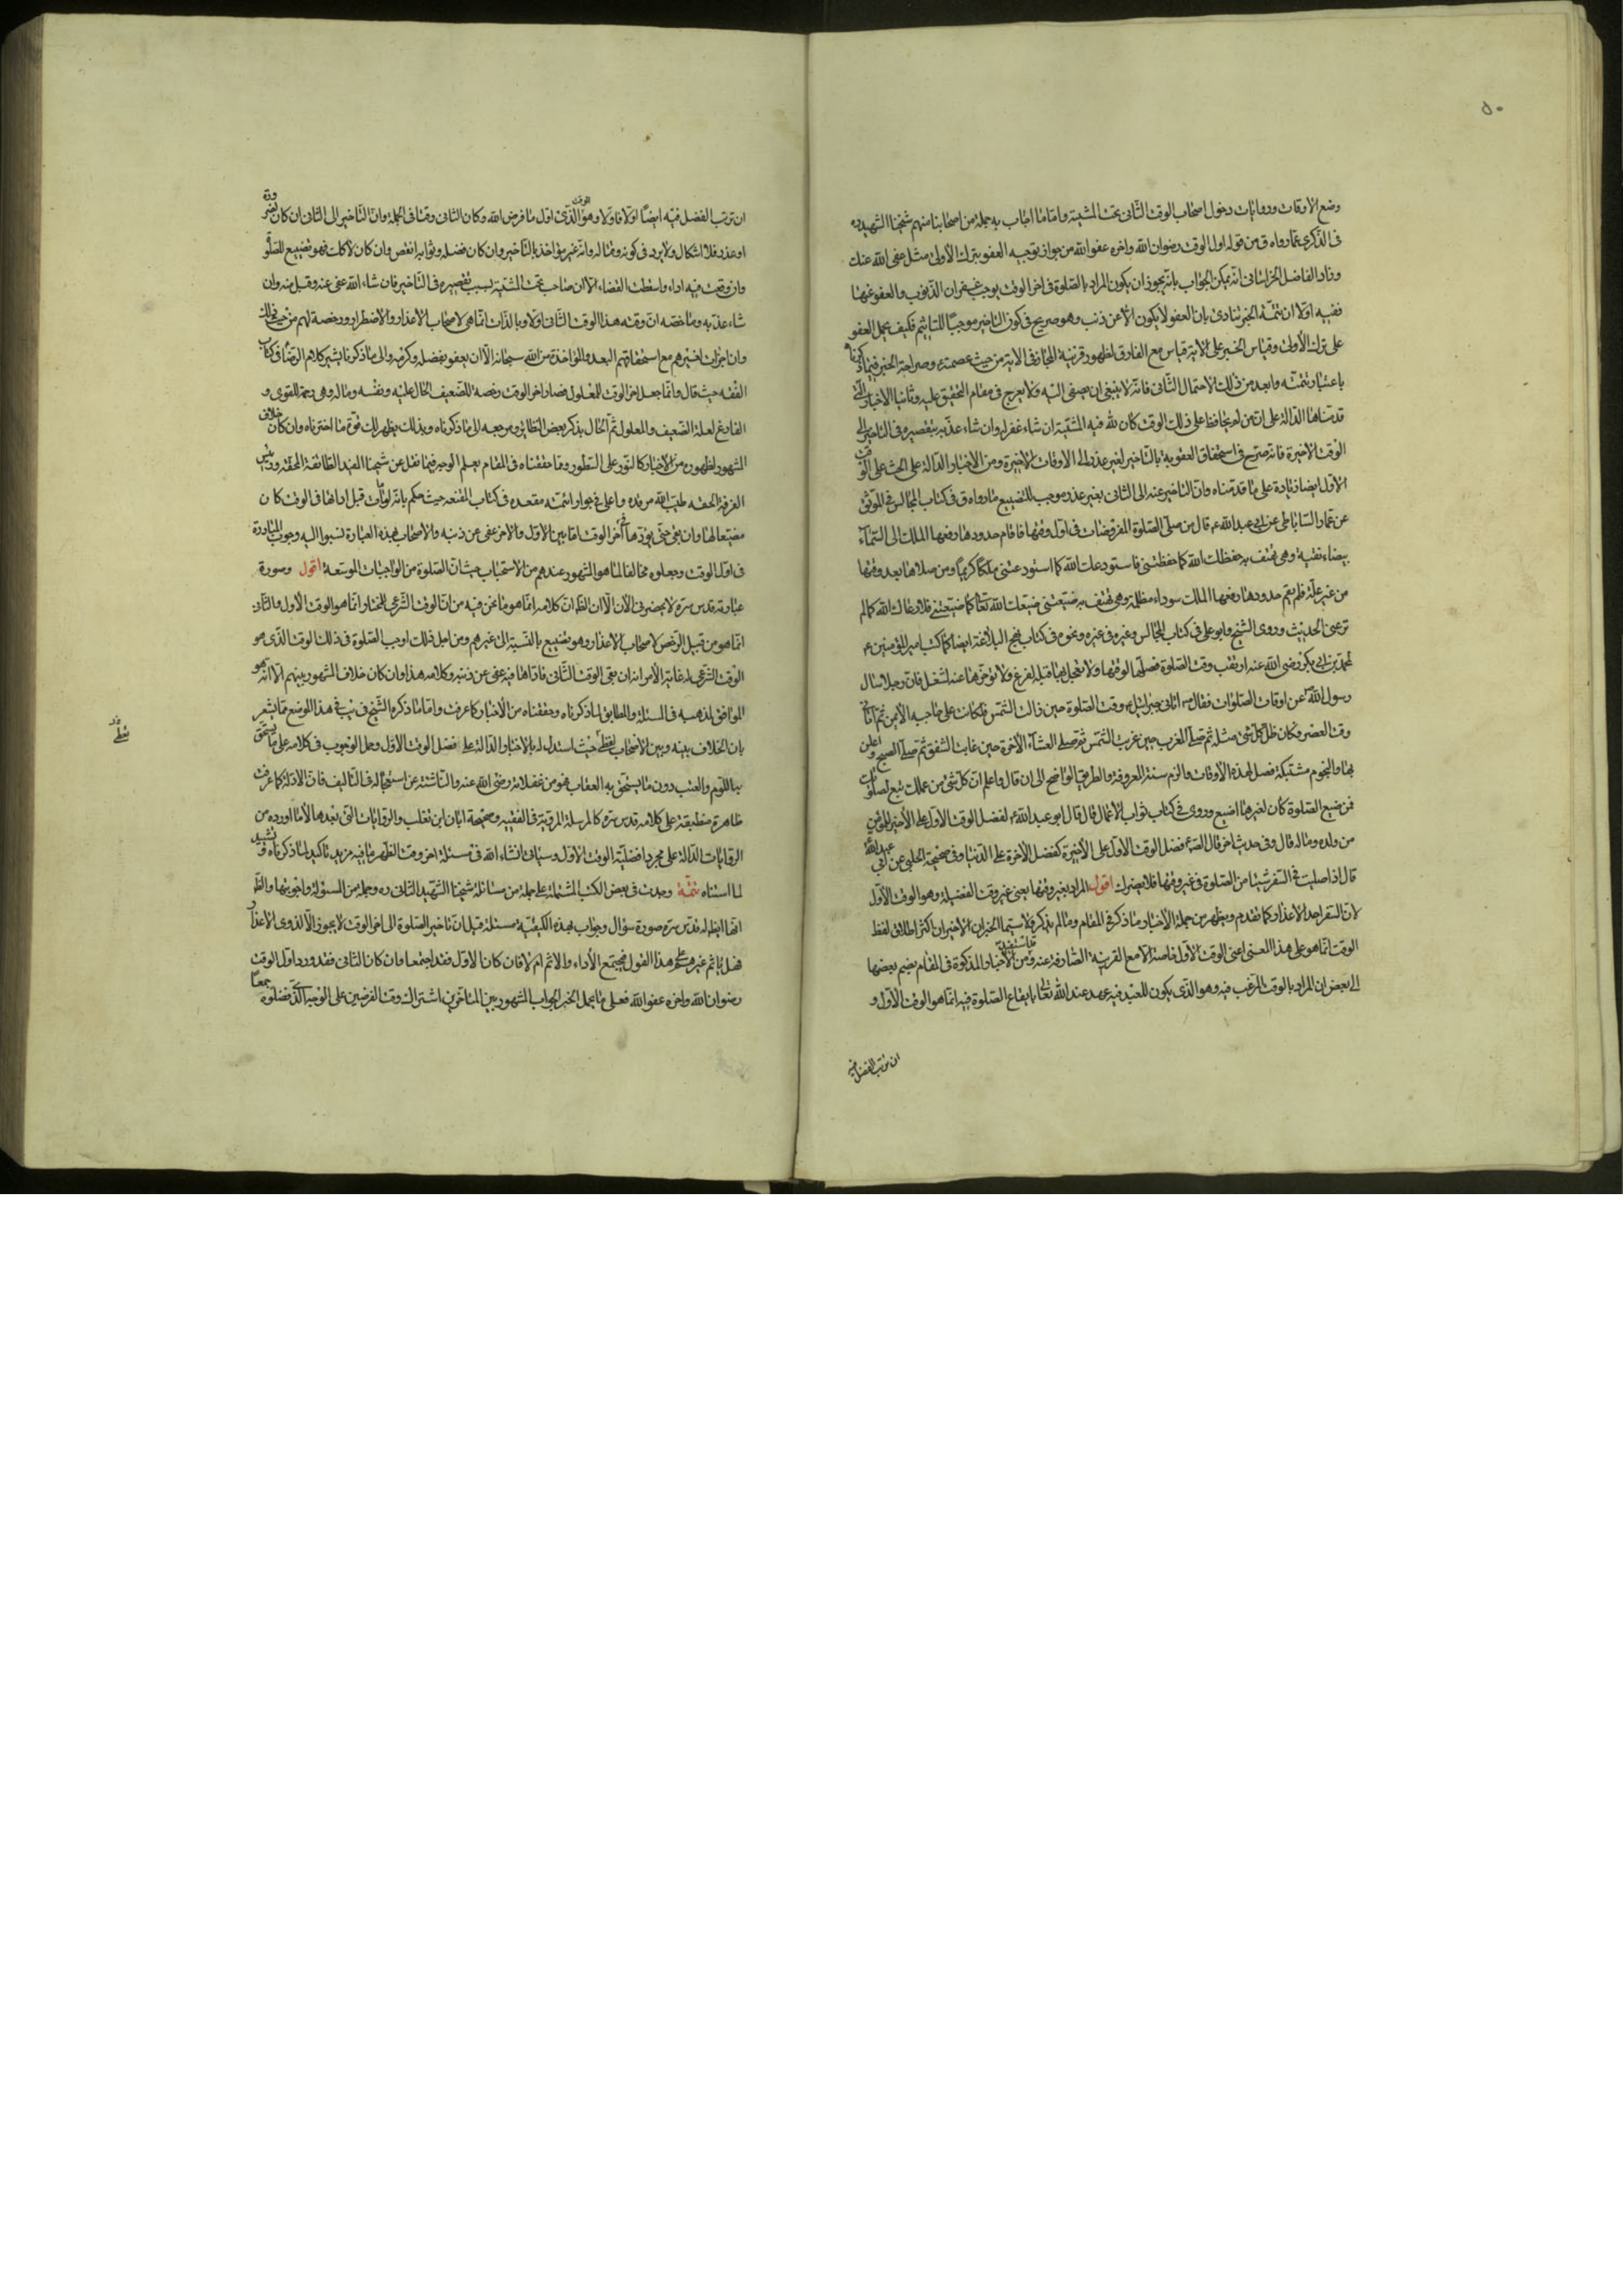 ٥٠
وضع الاوقات وروايات دخول اصحاب الوقت الثانى تحت المشية واما ما اجاب به جملة من اصحابنا منهم شيخنا الشهيد ره
فى الذكرى عما رواه ق من قوله اول الوقت رضوان الله واخره عفو الله من جواز توجيه العفو بترك الاولى مثل عفى الله عنك
وزاد الفاضل الخراسانى انه يمكن الجواب بانه يجوز ان يكون المراد بالصلوة فى اخر الوقت يوجب غفران الذنوب والعفو عنها
ففيه اولا ان تتمة الخبر تنادى بان العفو لا يكون الا عن ذنب وهو صريح فى كون التاخير موجبا للتاثيم فكيف يحمل العفو
على ترك الاولى وقياس الخبر على الاية قياس مع الفارق لظهور قرينة المجاز فى الاية من حيث عصمته وصراحة الخبر فيما ذكرناه
باعتبار تتمته وابعد من ذلك الاحتمال الثانى فانه لا ينبغى ان يصغى اليه ولا يعرج فى مقام التحقيق عليه وثانيا الاخبار التى
قدمناها الدالة على ان من لم يحافظ على ذلك الوقت كان لله فيه المشية ان شاء غفر له وان شاء عذبه بتقصيره فى التاخير الى
الوقت الاخيرة فانه صريح فى استحقاق العقوبة بالتاخير لغير عذر الى الاوقات الاخيرة ومن الاخبار الدالة على الحث على الوقت
الاول ايضا زيادة على ما قدمناه وان التاخير عنه الى الثانى بغير عذر موجب للتضييع ما رواه ق فى كتاب المجالس فى الموثق
عن عمار الساباطى عن ابى عبد الله ع قال من صلى الصلوة المفروضات فى اول وقتها فاقام حدودها رفعها الملك الى السماء
بيضاء نقية وهى تهتف به حفظك الله كما حفظتنى فاستودعك الله كما استودعتنى ملكا كريما ومن صلاها بعد وقتها
من غير علة فلم يقم حدودها رفعها الملك سوداء مظلمة وهى تهتف به ضيعتنى ضيعك الله تعالى كما ضيعتنى فلا رعاك الله كما لم
ترعنى الحديث وروى الشيخ وابو على فى كتاب المجالس وغيره فى غيره ونحوه فى كتاب نهج البلاغة ايضا كما كتب امير المؤمنين ع
لمحمد بن ابى بكر رضى الله عنه ارتقب وقت الصلوة فصلها لوقتها ولا تعجل بها قبله لفرغ ولا تؤخرها عنه لشغل فان رجلا سال
رسول الله ص عن اوقات الصلوات فقال ص اتانى جبرئيل ع وقت الصلوة حين زالت الشمس فكانت على حاجبه الايمن ثم اتانى
وقت العصر فكان ظل كل شئ مثله ثم صلى المغرب حين غربت الشمس ثم صلى العشاء الاخرة حين غابت الشفق ثم صلى الصبح واغلس
بها والنجوم مشتبكة فصل لهذه الاوقات والزم سنة المعروفة والطريق الواضح الى ان قال واعلم ان كل شئ من عملك تبع لصلوتك
فمن ضيع الصلوة كان لغيرها اضيع وروى فى كتاب ثواب الاعمال قال قال ابو عبد الله ع لفضل الوقت الاول على الاخير للمؤمن
من ولده وماله قال وفى حديث اخر قال الصادق ع فضل الوقت الاول على الاخيرة كفضل الاخرة على الدنيا وفى صحيحة الحلبى عن ابى عبد الله ع
قال اذا صليت فى السفر شيئا من الصلوة فى غير وقتها فلا يضرك اقول المراد بغير وقتها يعنى غير وقت الفضيلة وهو الوقت الاول
لان السفر احد الاعذار كما تقدم ويظهر من جملة الاخبار ما ذكر فى المقام وما لم يذكر ولا سيما الخبران الاخيران اكثر اطلاق لفظ
الوقت انما هو على هذا المعنى اعنى الوقت الاول خاصة الا مع القرينة الصارفة عنه ومن الاخبار المذكورة فى المقام بضم بعضها
الى بعض ان المراد بالوقت المرغب فيه وهو الذى يكون للعبد فيه عهد عند الله تعالى بايقاع الصلوة فيه انما هو الوقت الاول و
ان ترتب الفضل فيه
ان ترتب الفضل فيه ايضا اولا فاولا وهو الوقت الذى اول ما فرض الله وكان الثانى وقتا فى الجملة وان التاخير الى الثانى ان كان لضرورة
او عذر فلا اشكال ولا يرد فى كونه وقتا له وانه غير مؤاخذ بالتاخير وان كان فضله وثوابه انقص وان كان لا كك فهو تضييع للصلوة
وان وقعت فيه اداء واسقطت القضاء الا ان صاحبه تحت المشية بسبب تقصيره فى التاخير فان شاء الله عفى عنه وقبل منه وان
شاء عذبه وملخصه ان وقته هذا الوقت الثانى اولا وبالذات انما هى لاصحاب الاعذار والاضطرار ورخصة لهم من حيث ذلك
وان اجزات لغيرهم مع استحقاقهم البعد والمؤاخذة من الله سبحانه الا ان يعفو بفضله وكرمه والى ما ذكرنا يشير كلامهم الرضا فى كتاب
الفقه حيث قال وانما جعل اخر الوقت للمعلول فصار اخر الوقت رخصة للضعيف لحال علته ونفسه وماله وهى رحمة للقوى و
الفارغ لعلة الضعيف والمعلول ثم الحال بذكر بعض النظاير ومرجعه الى ما ذكرناه وبذلك يظهر لك قوة ما اخترناه وان كان خلاف
المشهور لظهوره من الاخبار كالنور على الطور وما حققناه فى المقام يعلم الوجه فيما نقل عن شيخنا المفيد الطائفة المحقة ورئيس
الفرقة الحقة طيب الله مرقده واعلى فى جوار ائمته مقعده فى كتاب المقنعة حيث حكم بانه لو مات قبل اداها فى الوقت كان
مضيعا لها وان بقى حتى يؤديها اخر الوقت او ما بين الاول والاخر عفى عن ذنبه والاصحاب بهذه العبارة نسبوا اليه وجوب المبادرة
فى اول الوقت وجعلوه مخالفا لما هو المشهور عندهم من الاستحباب حيث ان الصلوة من الواجبات الموسعة اقول وصورة
عبارته قدس سره لا يحضرنى الان الا ان الظ ان كلامه انما هو ما نحن فيه من ان الوقت الشرعى للمختار انما هو الوقت الاول والثانى
انما هو من قبيل الرخص لاصحاب الاعذار وهو تضييع بالنسبة الى غيرهم ومن اجل ذلك اوجب الصلوة فى ذلك الوقت الذى هو
الوقت الشرعى له غاية الامر انه ان بقى الوقت الثانى فاداها فيه عفى عن ذنبه وكلامه هذا وان كان خلاف المشهور بينهم الا انه هو
الموافق لمذهبه فى المسئلة والمطابق لما ذكرناه وحققناه من الاخبار كما عرفت واما ما ذكره الشيخ فى يب فى هذا الموضع مما يشعر
بان الخلاف بينه وبين الاصحاب لفظى حيث استدل له بالاخبار الدالة على افضل الوقت الاول وحمل الوجوب فى كلامه على ما يستحق
به اللوم والعتب دون ما يستحق به العقاب فهو من غفلاته رضى الله عنه والناشئة عن استعجاله فى التاليف فان الادلة كما عرفت
ظاهرة منطبقة على كلامه قدس سره كالمرسلة المروية فى الفقيه وصحيحة ابان بن تغلب والروايات التى بعدها الا ما اورده من
الروايات الدالة على مجرد افضلية الوقت الاول وسياتى انشاء الله فى مسئلة اخر وقت الظهر ما فيه مزيد تاكيد لما ذكرناه وتشييد
لما اسسناه تتمة وجدت فى بعض الكتب المشتملة على جملة من مسائل شيخنا الشهيد الثانى ره وجملة من المسئولة واجوبتها والظ
انها ايضا له قدس سره صورة سؤال وجواب بهذه الكيفية مسئلة قيل ان تاخير الصلوة الى اخر الوقت لا يجوز الا لذوى الاعذار
فهل ياثم غيرهم على هذا القول فيجتمع الاداء والاثم ام لا فان كان الاول فقد اجتمعا وان كان الثانى فقد ورد اول الوقت
رضوان الله واخره عفو الله فعلى ما يحمل الخبر الجواب المشهور بين المتاخرين اشتراك وقت الفرضين على الوجه الذى فصلوه جمعا